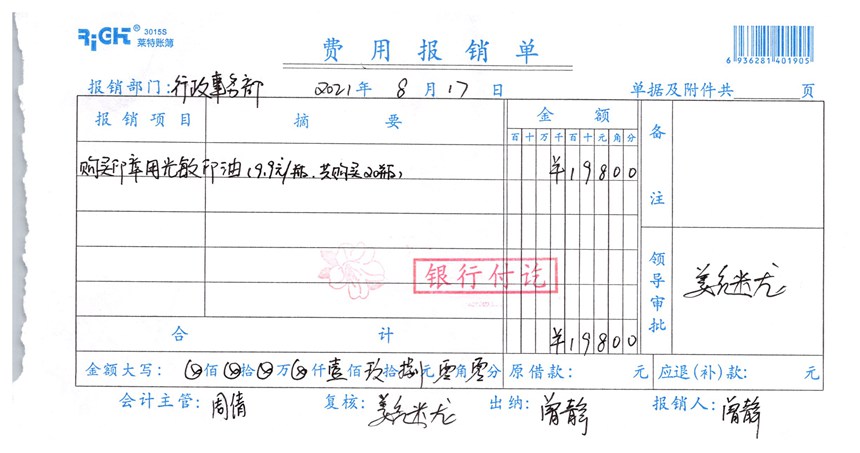 RiGHT® 3015S
莱特账簿
费用报销单
6 936281 401905
报销部门:行政事务部 2021年 8月17日 单据及附件共 页
报销项目 摘要 金额 备注
百十万千百十元角分
购买印章用光敏印油(9.9元/瓶、共购买20瓶) ¥19800
银行付讫
领导审批
合计 ¥19800
金额大写: ⊗佰⊗拾⊗万⊗仟壹佰玖拾捌元零角零分 原借款: 元 应退(补)款: 元
会计主管:周倩 复核: 出纳:曾静 报销人:曾静